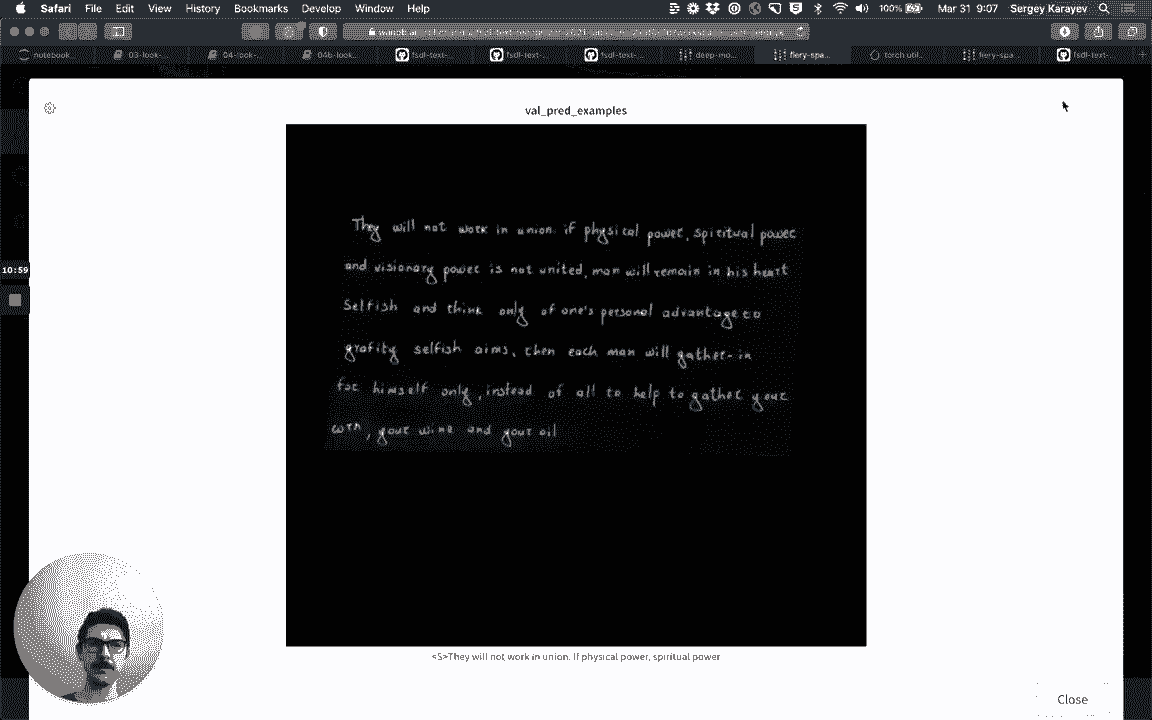 Safari File Edit View History Bookmarks Develop Window Help 100% Mar 31 9:07 Sergey Karayev
notebook... 03-look-... 04-look-... 04b-look... fsdl-text-... fsdl-text-... fsdl-text-... deep-mo... fiery-spa... torch util... fiery-spa... fsdl-text-...
val_pred_examples
They will not work in union. if physical power, spiritual power
and visionary power is not united, man will remain in his heart
Selfish and think only of one's personal advantage to
grafity selfish aims, then each man will gather-in
for himself only, instead of all to help to gather your
corn, your wine and your oil
10:59
<S>They will not work in union. If physical power, spiritual power
Close